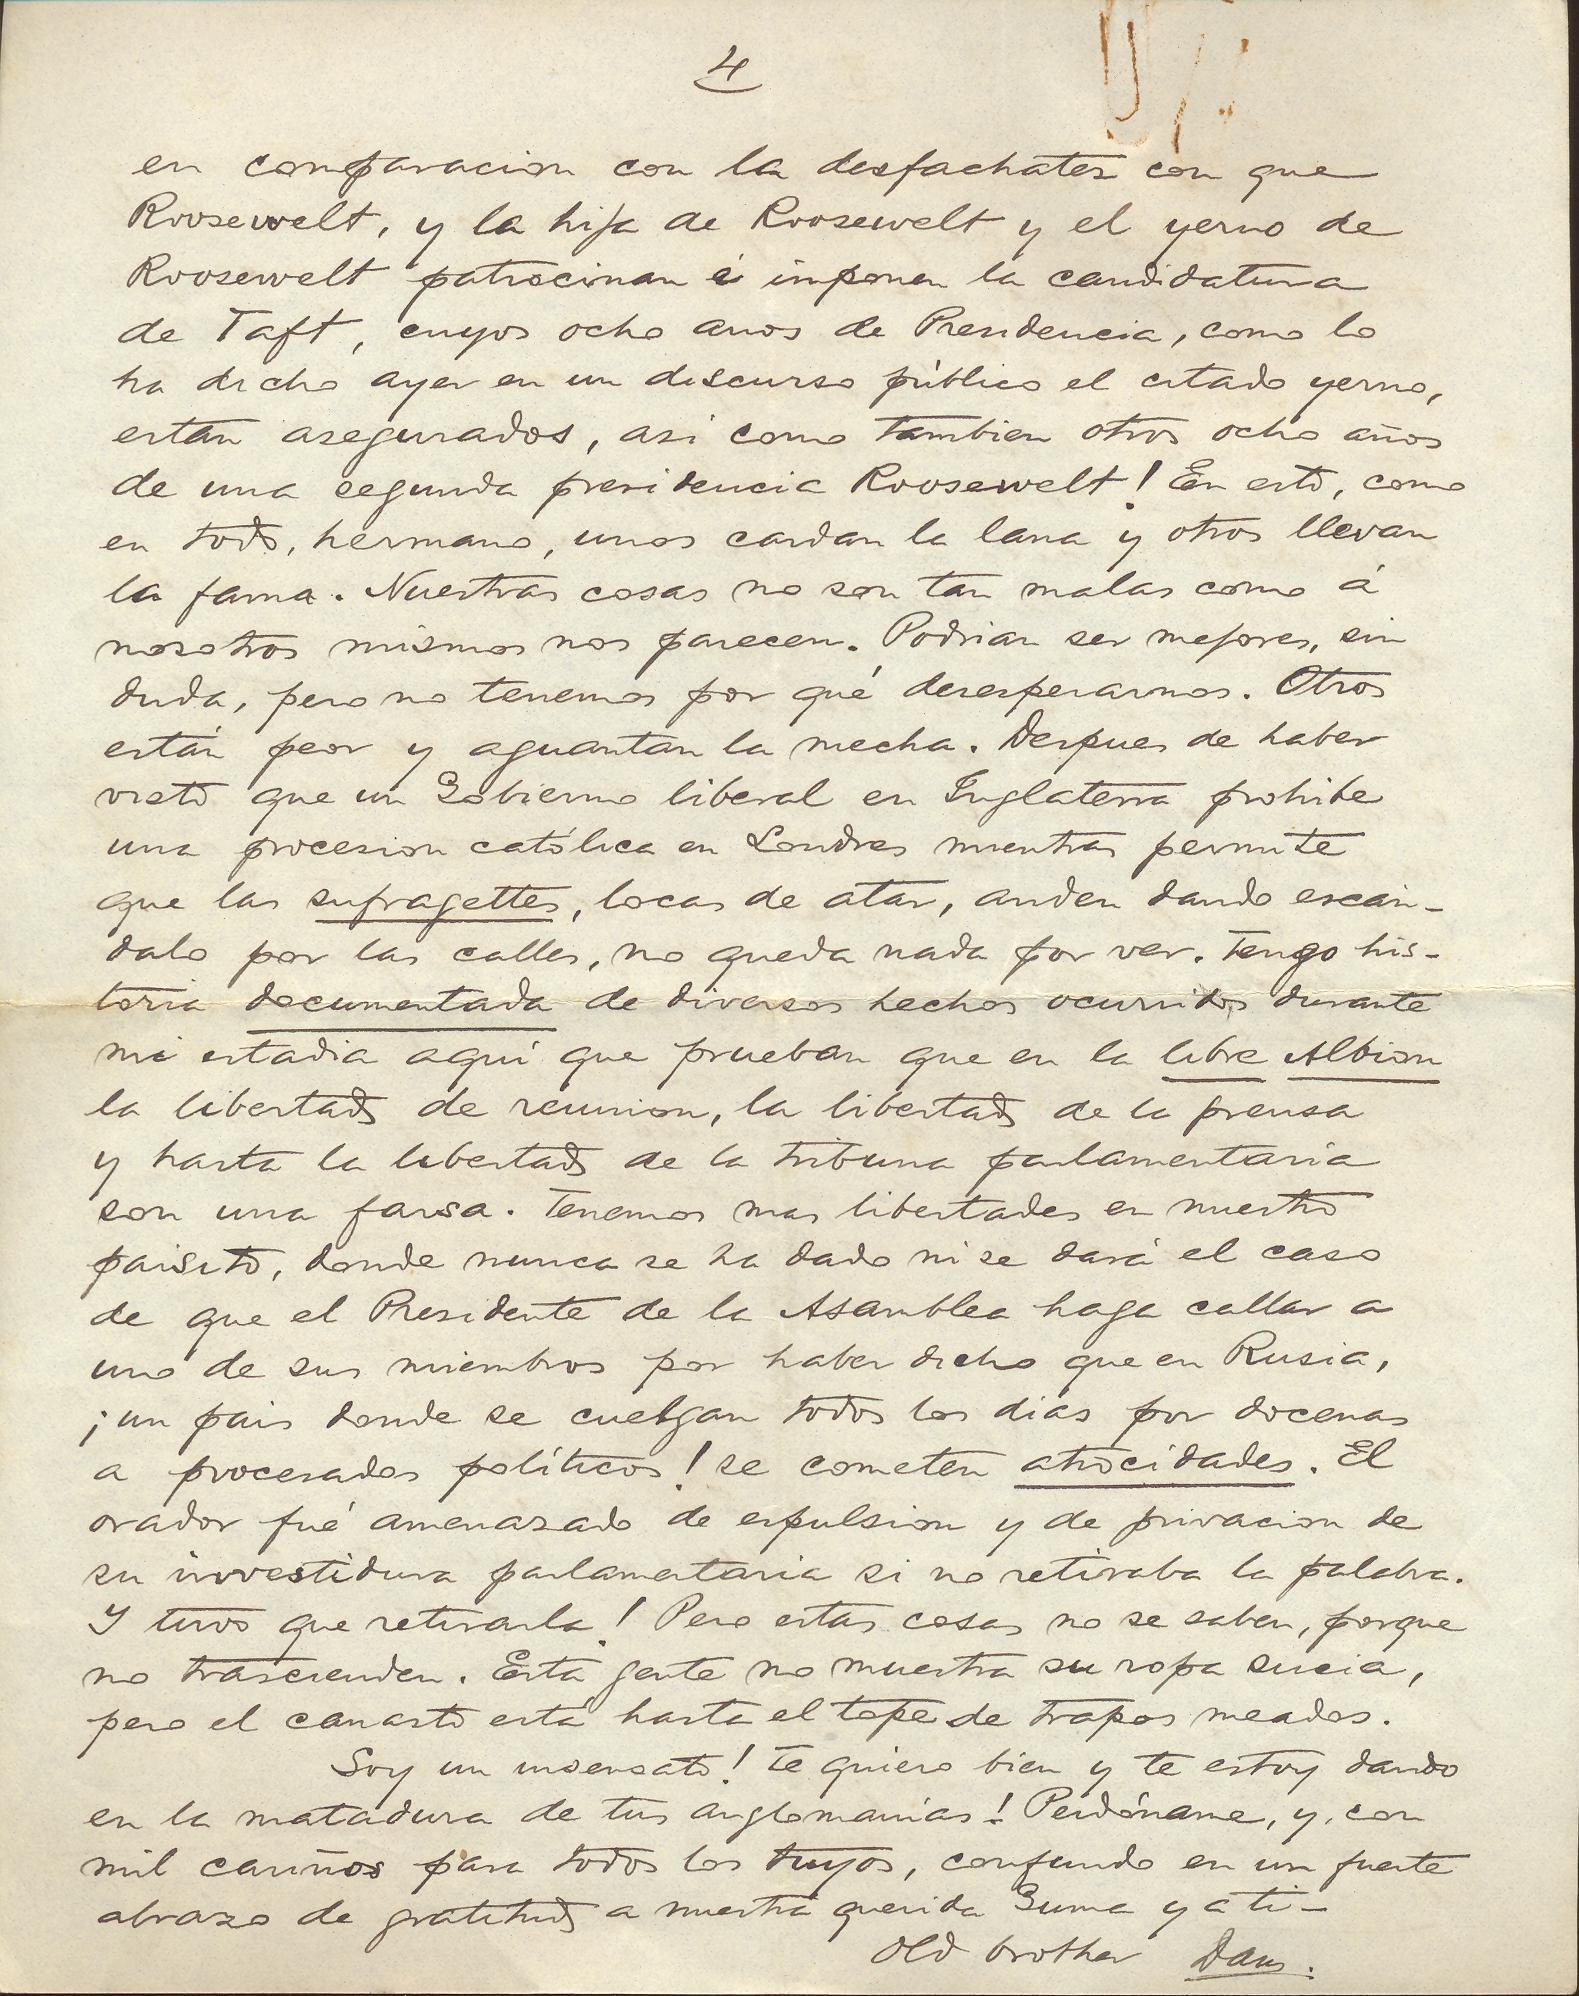 4
en comparacion con la desfachatez con que
Roosewelt, y la hija de Roosewelt y el yerno de
Roosewelt patrocinan é imponen la candidatura
de Taft, cuyos ocho anos de Presidencia, como lo
ha dicho ayer en un discurso público el citado yerno,
estan asegurados, asi como tambien otros ocho años
de una segunda presidencia Roosewelt! En esto, como
en todo, hermano, unos cardan la lana y otros llevan
la fama. Nuestras cosas no son tan malas como á
nosotros mismos nos parecen. Podrian ser mejores, sin
duda, pero no tenemos por qué desesperarnos. Otros
están peor y aguantan la mecha. Despues de haber
visto que un Gobierno liberal en Inglaterra prohibe
una procesion católica en Londres mientras permite
que las sufragettes, locas de atar, anden dando escán-
dalo por las calles, no queda nada por ver. Tengo his-
toria documentada de diversos hechos ocurridos durante
mi estadia aquí que prueban que en la libre Albion
la libertad de reunion, la libertad de la prensa
y hasta la libertad de la tribuna parlamentaria
son una farsa. Tenemos mas libertades en nuestro
paisito, donde nunca se ha dado ni se dará el caso
de que el Presidente de la Asamblea haga callar a
uno de sus miembros por haber dicho que en Rusia,
¡un pais donde se cuelgan todos los dias por docenas
a procesados políticos! se cometen atrocidades. El
orador fué amenazado de espulsion y de privacion de
su investidura parlamentaria si no retiraba la palabra.
Y tuvo que retirarla! Pero estas cosas no se saben, porque
no trascienden. Esta gente no muestra su ropa sucia,
pero el canasto está hasta el tope de trapos meados.
Soy un insensato! Te quiero bien y te estoy dando
en la matadura de tus anglomanías! Perdóname, y, con
mil cariños para todos los tuyos, confundo en un fuerte
abrazo de gratitud a nuestra querida Guma y a ti-
Old brother Dan.